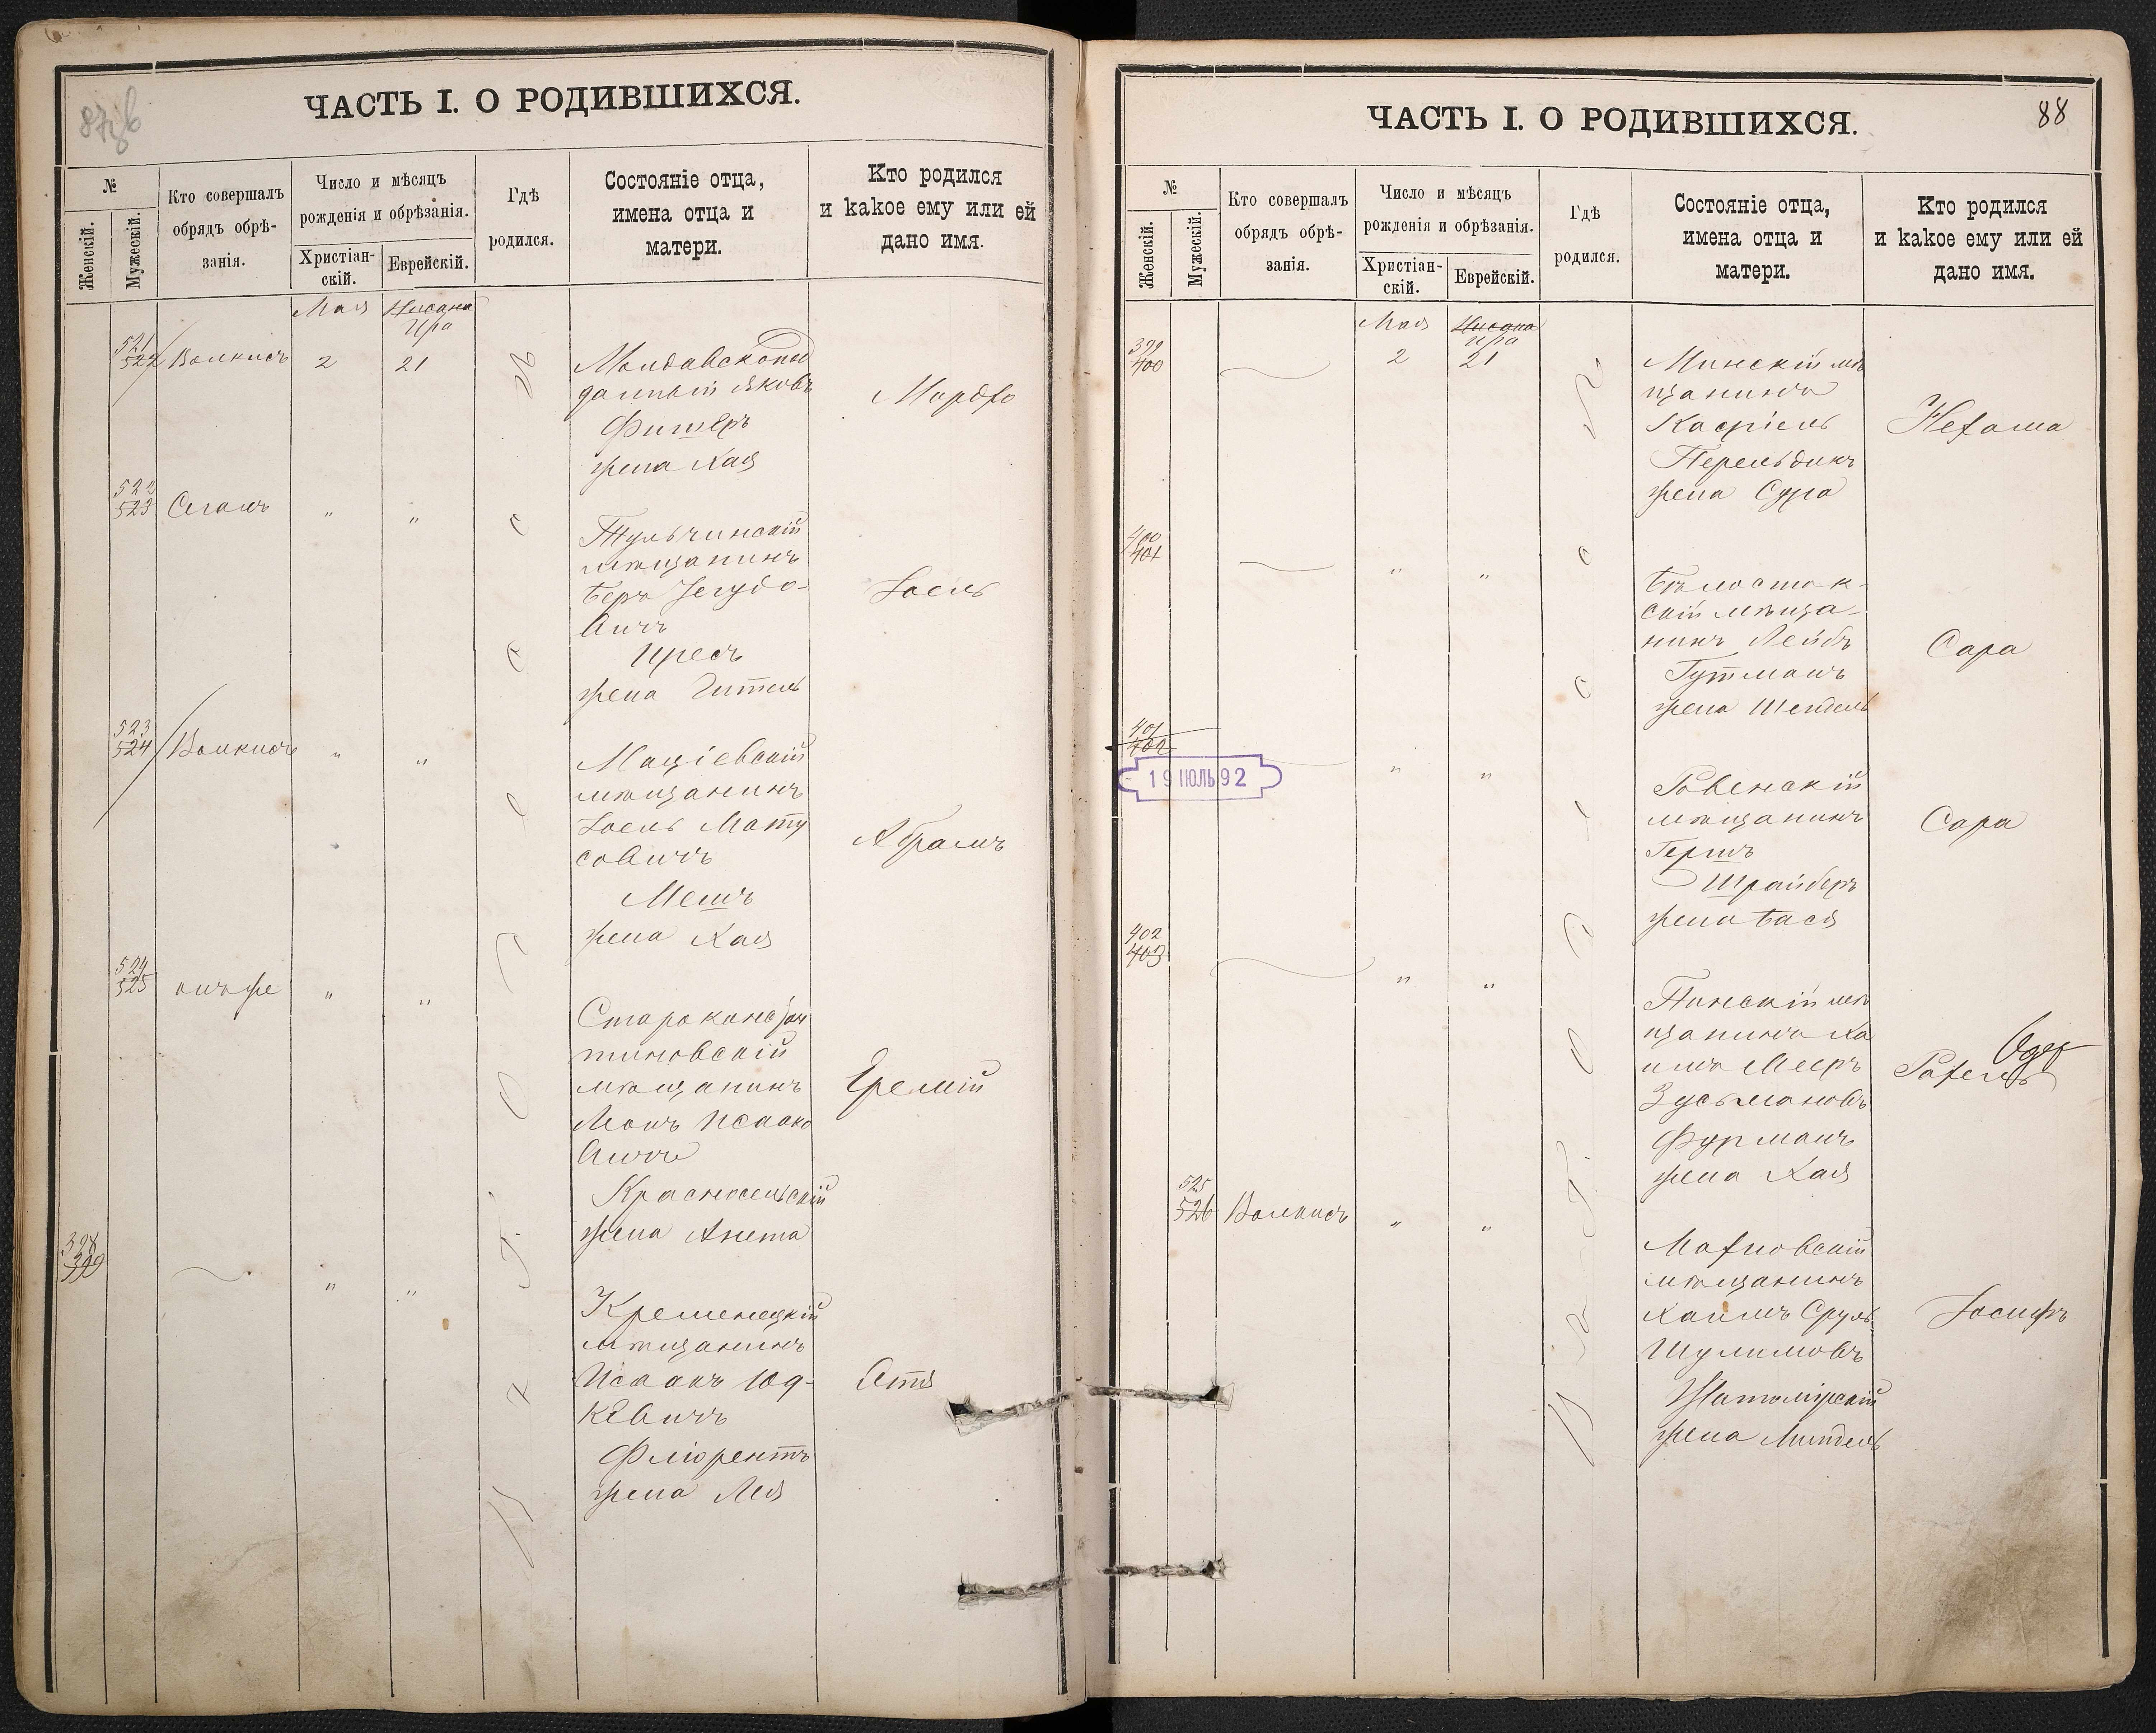 ЧАСТЬ I. О РОДИВШИХСЯ.
№
Женскій.
Мужескій.
Кто совершалъ
обрядъ обрѣ-
занія.
Число и мѣсяцъ
рожденія и обрѣзанія.
Христіан-
скій.
Еврейскій.
Гдѣ
родился.
Состояніе отца,
имена отца и
матери.
Кто родился
и какое ему или ей
дано имя.
Мая Нисана
Ира
521
522 Волкисъ 2 21
Молдавскопод
данный Яковъ
Фишеръ
жена Хая
Мордхо
522
523 Сегалъ " "
Тульчинскій
мѣщанинъ
Беръ Іегудо-
вичъ
Пресъ
жена Гитель
Іоель
523
524 Волкисъ " "
Маціевскій
мѣщанинъ
Іоель Мату
совичъ
Мешъ
жена Хая
Абрамъ
524
525 онъ же " "
Староконстан
тиновскій
мѣщанинъ
Исаако
вичъ
Красносельскій
жена Анета
Еремій
398
399 " "
Кременецкій
мѣщанинъ
Исаакъ Юд-
кевичъ
Флюрентъ
жена Лея
Отт
ЧАСТЬ I. О РОДИВШИХСЯ.
88
№
Женскій.
Мужескій.
Кто совершалъ
обрядъ обрѣ-
занія.
Число и мѣсяцъ
рожденія и обрѣзанія.
Христіан-
скій.
Еврейскій.
Гдѣ
родился.
Состояніе отца,
имена отца и
матери.
Кто родился
и какое ему или ей
дано имя.
Мая Нисана
Ира
399
400 2 21
Минскій мѣ
щанинъ
Касріель
Перельдикъ
жена Сура
Нехама
400
401 " "
Бѣлосток-
скій мѣща-
нинъ Лейбъ
Гутманъ
жена Шендель
Сара
401
402 " "
19 ІЮЛЬ 92
Ровенскій
мѣщанинъ
Гершъ
Шрайберъ
жена Бася
Сара
402
403 " "
Пинскій мѣ
щанинъ Ха
имъ Мееръ
Зусьмановъ
Фурманъ
жена Хая
Рахель
525
526 Волкисъ " "
Махновскій
мѣщанинъ
Хаимъ Сруль
Шулимовъ
Житомірскій
жена Миндель
Іосифъ